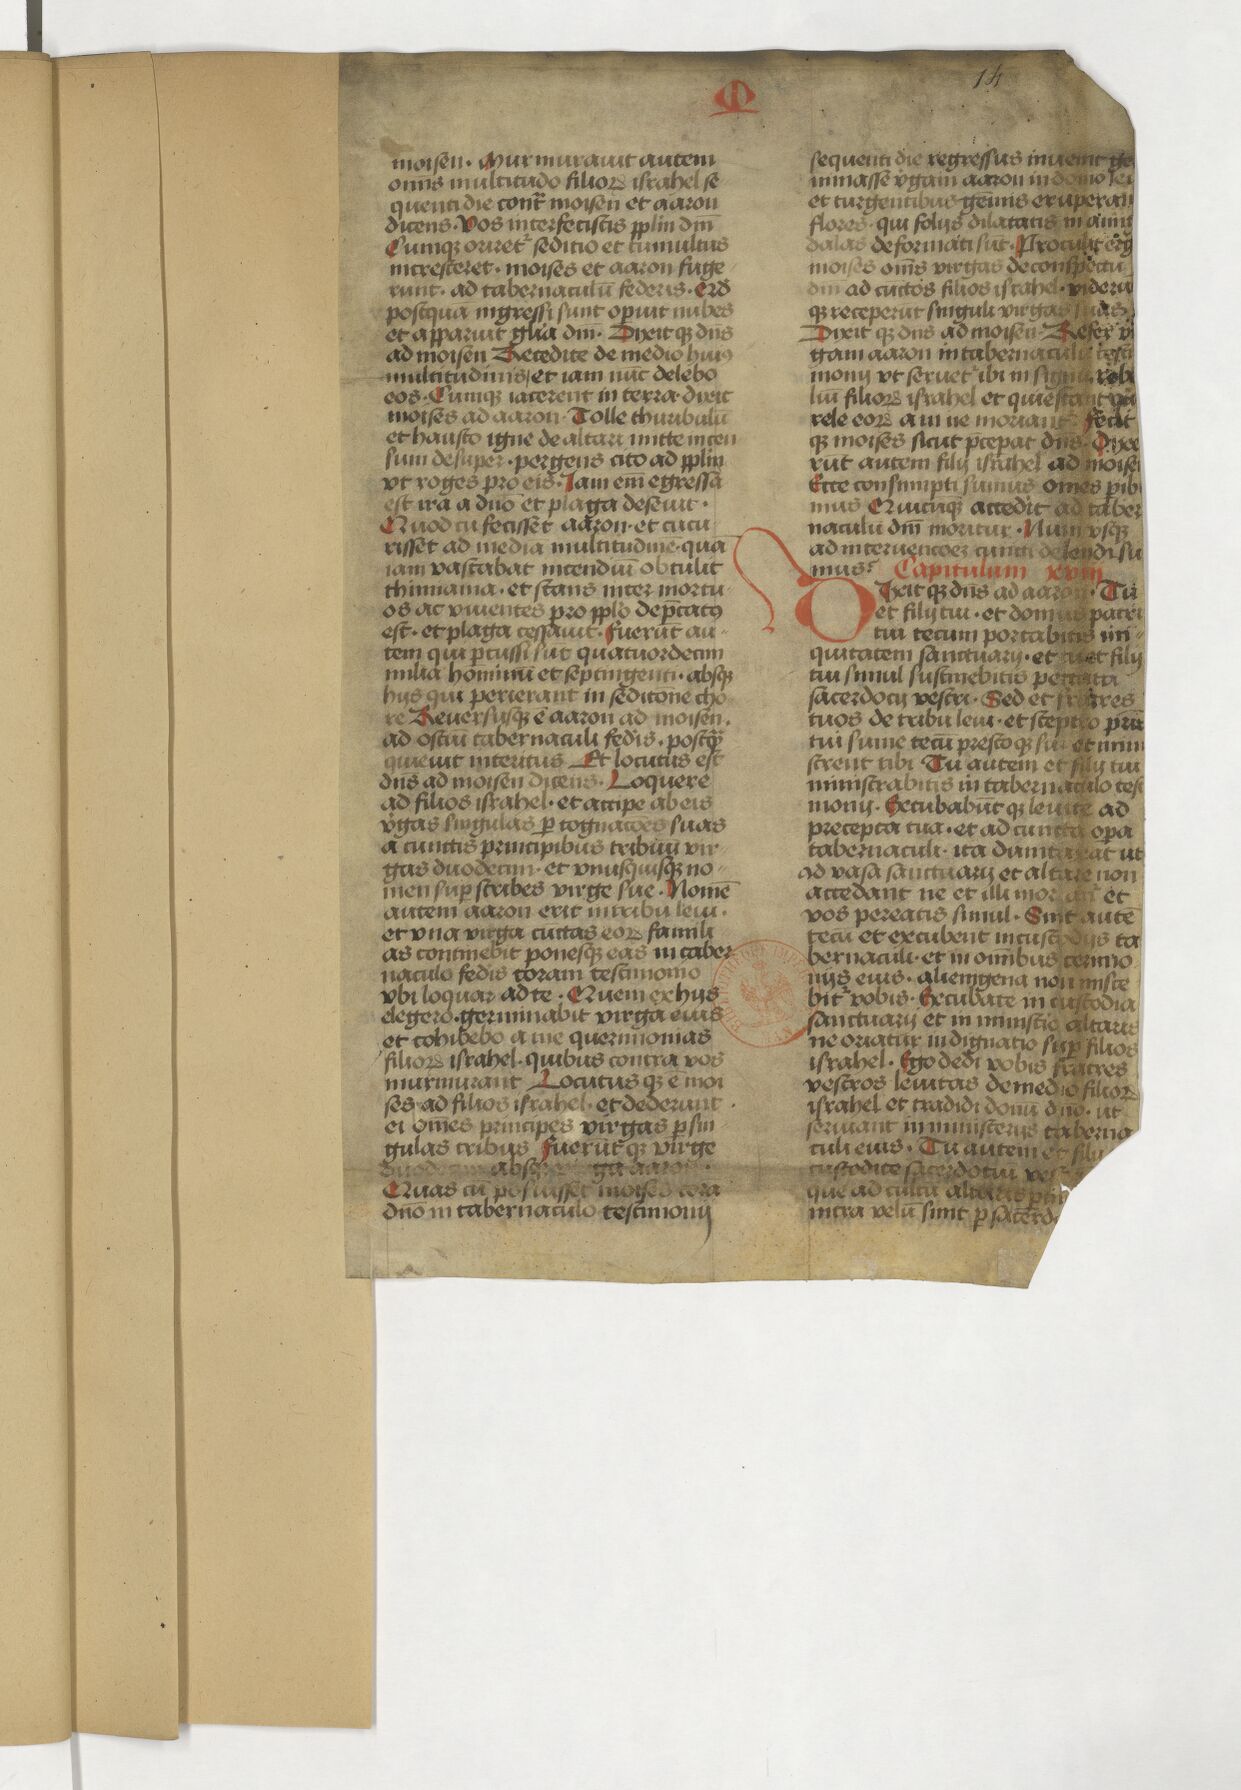 14
M
moisen. Murmurauit autem
om̄s multitudo filioꝝ israhel se
quenti die contͣ moisen et aaron
dicens. Vos interfecistis pplm dm̄
Cumqꝫ oriret᷑ seditio et tumultus
incresceret. moises et aaron fuge
runt. ad tabernaculū federis. Qd
postquā ingressi sunt opuit nubes
et apparuit gl̄ia dn̄i. Dixitqꝫ dn̄s
ad moisen Recedite de medio huiꝰ
multitudinis et iam nūc delebo
eos. Cumqꝫ iacerent in terra dixit
moises ad aaron. Tolle thuribulū
et hausto igne de altari mitte incen
sum desuper. pergens cito ad pplm
vt roges pro eis. Iam em̄ egressa
est ira a dn̄o et plaga deseuit.
Quod cū fecisset aaron. et cucu
risset ad mediā multitudinē. quā
iam vastabat incendiū obtulit
thimiama. et stans inter mortu
os ac viuentes pro pplo dep̄catꝰ
est. et plaga cessauit. Fuerūt au
tem qui ꝑcussi sūt quatuordecim
milia hominū et septingenti. absqꝫ
hijs qui perierant in seditione cho
re Reuersusqꝫ ē aaron ad moisen.
ad ostiū tabernaculi fedis. postqͣ̄
quieuit interitus Et locutus est
dn̄s ad moisen dicens. Loquere
ad filios israhel. et accipe ab eis
v̓gas singulas ꝑ cognacōes suas
a cunctis principibus tribuū vir
gas duodecim. et vniuscuiusqꝫ no
men suꝑ scribes virge sue. Nomē
autem aaron erit in tribu leui.
et vna virga cūctas eoꝝ famili
as continebit ponesqꝫ eas in taber
naculo fedis coram testimonio
vbi loquar ad te. Quem ex hijs
elegero. germinabit virga eius
et cohibebo a me querimonias
filioꝝ israhel. quibus contra vos
murmurant Locutusqꝫ ē moi
ses ad filios israhel. et dederunt
ei om̄es principes virgas ꝑ sin
gulas tribus Fuerūtqꝫ virge
duodecim absqꝫ virga aaron.
Quas cū posuisset moises corā
dn̄o in tabernaculo testimonij
sequenti die regressus inuenit ge
minasse v̓gam aaron in domo leui
et turgentibus gem̄is eruperant
flores. qui folijs dilatatis in amig
dalas deformati sūt. Protulit ergo
moises om̄s virgas de conspectu
dn̄i ad cūctos filios israhel. viderū
qꝫ receperūt singuli virgas suas.
Dixitqꝫ dn̄s ad moisen. Refer vir
gam aaron in tabernaculū testi
monij vt seruet᷑ ibi in signū rebel
liū filioꝝ israhel et quiescant que
rele eoꝝ a me ne moriant᷑. Fecit
qꝫ moises sicut p̄cepat dn̄s. Dixe
rūt autem filij israhel ad moisen
Ecce consumpti sumus omēs ꝑib
mus Quicūqꝫ accedit ad taber
naculū dn̄i moritur. Num vsqꝫ
ad internicionē cuncti delendi su
mus? Capitulum xviij
Dixitqꝫ dn̄s ad aaron. Tu
et filij tui. et domus patri
tui tecum portabitis ini
quitatem sanctuarij. et tu et filij
tui simul sustinebitis peccata
sacerdocij vestri. Sed et fratres
tuos de tribu leui. et sceptro patris
tui sume tecū prestoqꝫ sint et mini
strent tibi Tu autem et filij tui
ministrabitis in tabernaculo testi
monij. Excubabūtqꝫ leuite ad
precepta tua. et ad cuncta opa
tabernaculi. ita dumtaxat ut
ad vasa sanctuarij et altare non
accedant ne et illi moriant᷑ et
vos pereatis simul. Sint autē
tecū et excubent in custodijs ta
bernaculi. et in om̄ibus cerimo
nijs eius. alienigena non misce
bit᷑ vobis. Excubate in custodia
sanctuarij et in ministerio altaris
ne oriatur indignatio suꝑ filios
israhel. Ego dedi vobis fratres
vestros leuitas de medio filioꝝ
israhel et tradidi donū dn̄o. ut
seruiant in ministerijs taberna
culi eius. Tu autem et filij
custodite sacerdotiū
que ad cultū altaris
intra velū sunt ꝑ